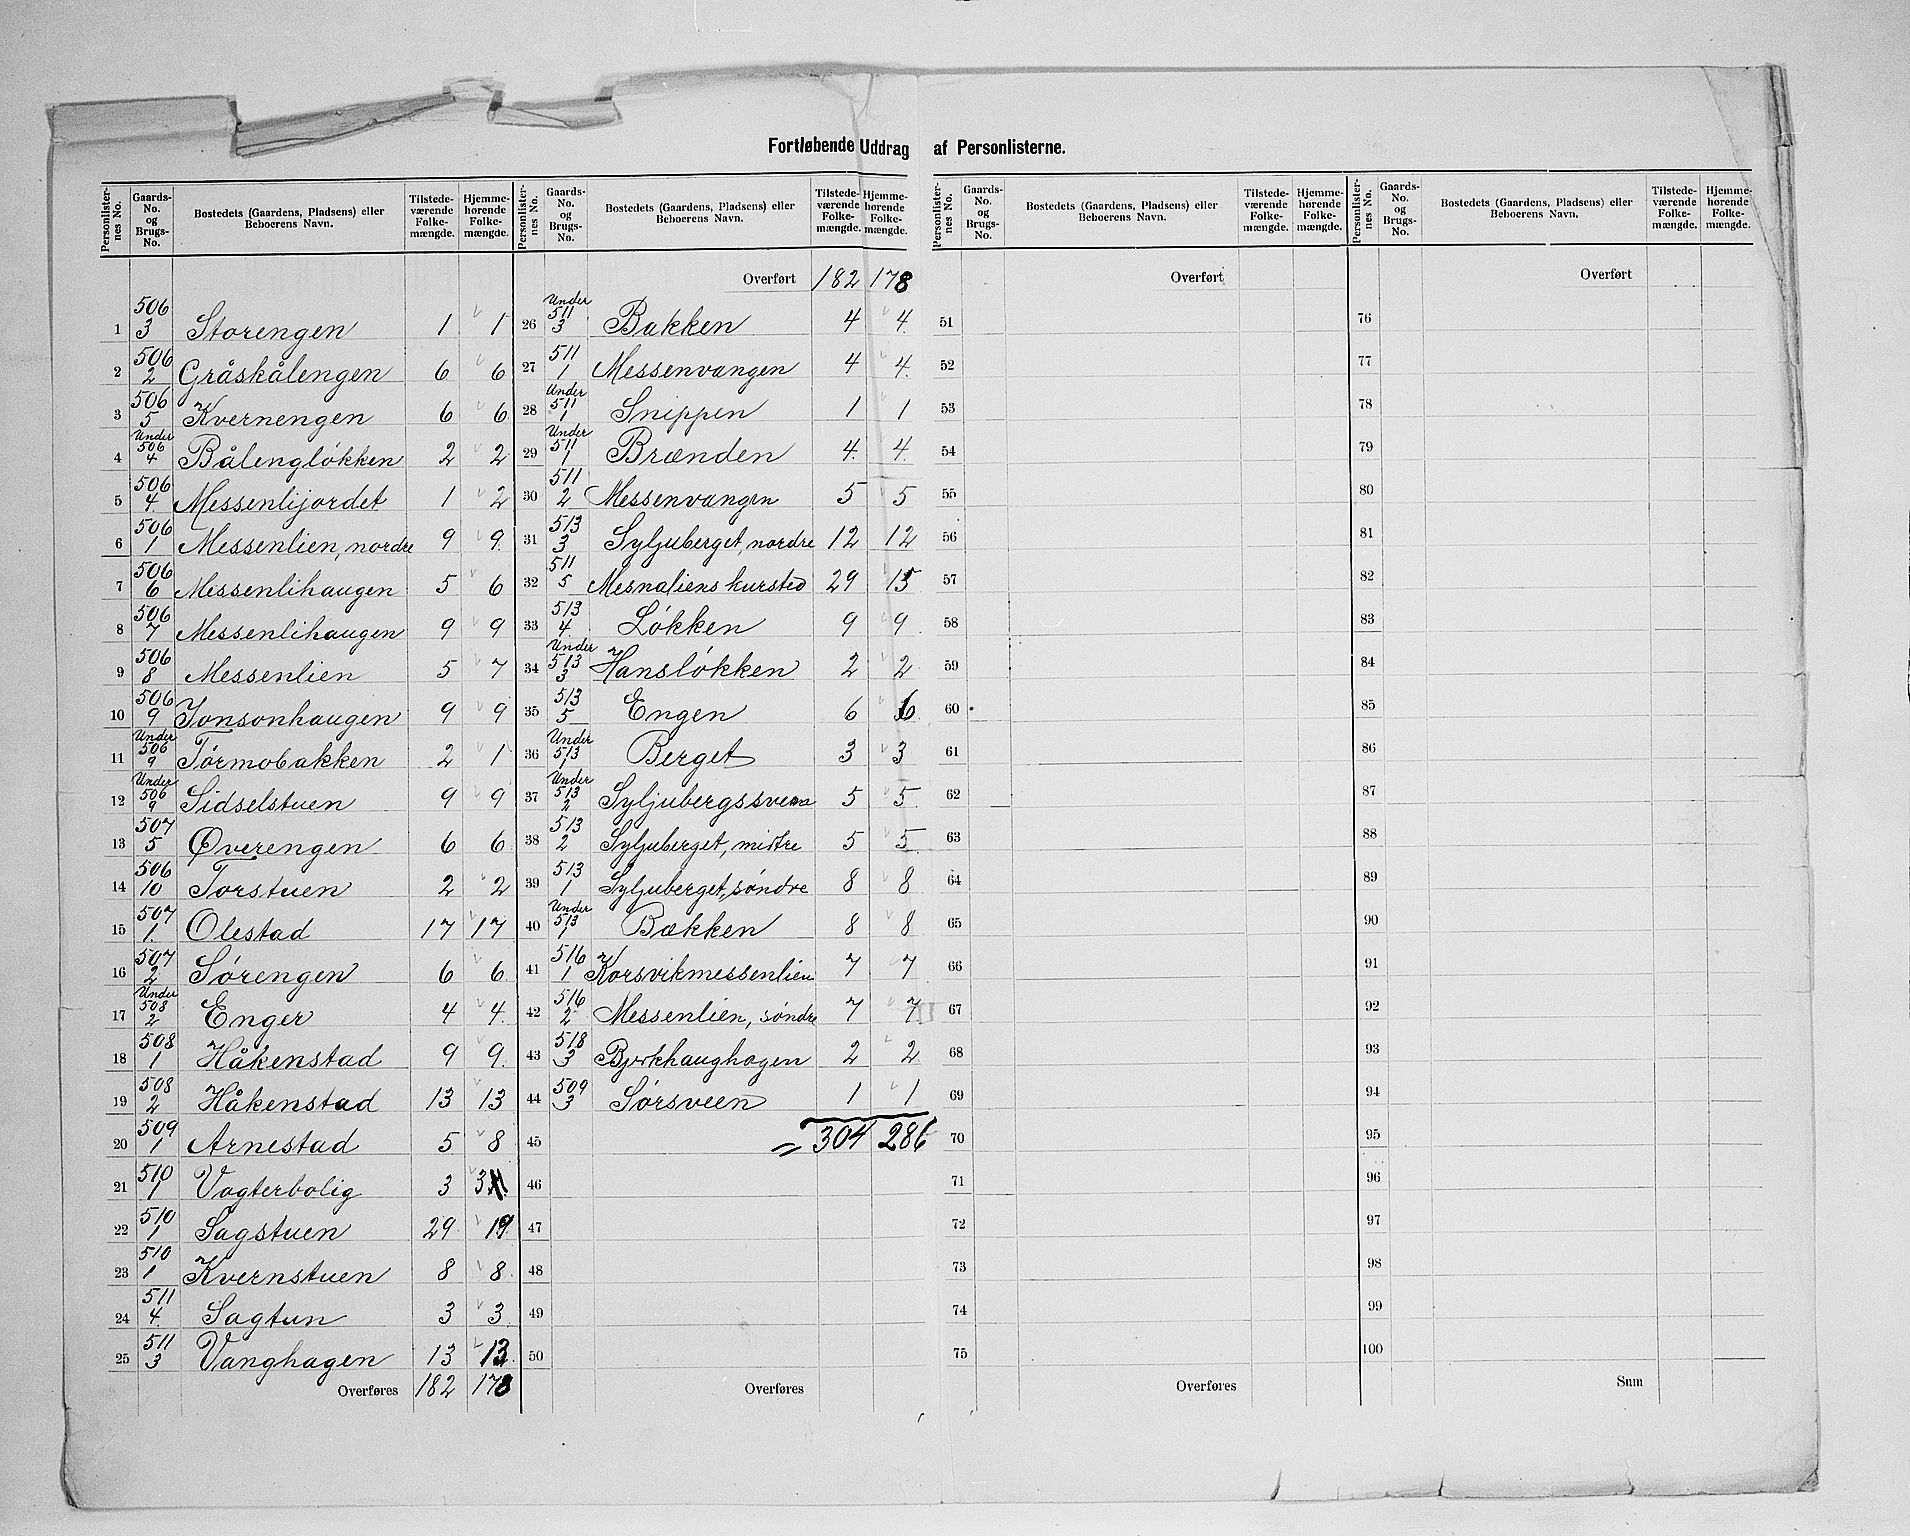 Fortløbende Uddrag af Personlisterne.
Personlister-nes No. | Gaards-No. og Brugs-No. | Bostedets (Gaardens, Pladsens) eller Beboerens Navn. | Tilstede-værende Folke-mængde. | Hjemme-hørende Folke-mængde.
1 | 506/3 | Storengen | 1 | 1
2 | 506/2 | Gråskålengen | 6 | 6
3 | 506/5 | Kvernengen | 6 | 6
4 | Under 506/4 | Bålengløkken | 2 | 2
5 | 506/4 | Messenlijordet | 1 | 2
6 | 506/1 | Messenlien, nordre | 9 | 9
7 | 506/6 | Messenlihaugen | 5 | 6
8 | 506/7 | Messenlihaugen | 9 | 9
9 | 506/8 | Messenlien | 5 | 7
10 | 506/9 | Jonsonhaugen | 9 | 9
11 | Under 506/9 | Tørmobakken | 2 | 1
12 | Under 506/9 | Sidselstuen | 9 | 9
13 | 507/5 | Øverengen | 6 | 6
14 | 506/10 | Torstuen | 2 | 2
15 | 507/1 | Olestad | 17 | 17
16 | 507/2 | Sørengen | 6 | 6
17 | Under 508/2 | Enger | 4 | 4
18 | 508/1 | Håkenstad | 9 | 9
19 | 508/2 | Håkenstad | 13 | 13
20 | 509/1 | Arnestad | 5 | 8
21 | 510/1 | Vogterbolig | 3 | 3
22 | 510/1 | Sagstuen | 29 | 19
23 | 510/1 | Kvernstuen | 8 | 8
24 | 511/4 | Sagtun | 3 | 3
25 | 511/3 | Vanghagen | 13 | 13
Overføres 182 178
Personlister-nes No. | Gaards-No. og Brugs-No. | Bostedets (Gaardens, Pladsens) eller Beboerens Navn. | Tilstede-værende Folke-mængde. | Hjemme-hørende Folke-mængde.
Overført 182 178
26 | Under 511/3 | Bakken | 4 | 4
27 | 511/1 | Messenvangen | 4 | 4
28 | Under 511/1 | Snippen | 1 | 1
29 | Under 511/1 | Brænden | 4 | 4
30 | 511/2 | Messenvangen | 5 | 5
31 | 513/3 | Syljuberget, nordre | 12 | 12
32 | 511/5 | Mesnaliens kursted | 29 | 15
33 | 513/4 | Løkken | 9 | 9
34 | Under 513/3 | Hansløkken | 2 | 2
35 | 513/5 | Engen | 6 | 6
36 | Under 513/1 | Berget | 3 | 3
37 | Under 513/2 | Syljubergssveen | 5 | 5
38 | 513/2 | Syljuberget, midtre | 5 | 5
39 | 513/1 | Syljuberget, søndre | 8 | 8
40 | Under 513/1 | Bækken | 8 | 8
41 | 516/1 | Korsvikmessenlien | 7 | 7
42 | 516/2 | Messenlien, søndre | 7 | 7
43 | 518/3 | Bjørkhaughagen | 2 | 2
44 | 509/3 | Sørsveen | 1 | 1
45 | = 304 286
46
47
48
49
50
Overføres
Personlister-nes No. | Gaards-No. og Brugs-No. | Bostedets (Gaardens, Pladsens) eller Beboerens Navn. | Tilstede-værende Folke-mængde. | Hjemme-hørende Folke-mængde.
Overført
51
52
53
54
55
56
57
58
59
60
61
62
63
64
65
66
67
68
69
70
71
72
73
74
75
Overføres
Personlister-nes No. | Gaards-No. og Brugs-No. | Bostedets (Gaardens, Pladsens) eller Beboerens Navn. | Tilstede-værende Folke-mængde. | Hjemme-hørende Folke-mængde.
Overført
76
77
78
79
80
81
82
83
84
85
86
87
88
89
90
91
92
93
94
95
96
97
98
99
100
Sum